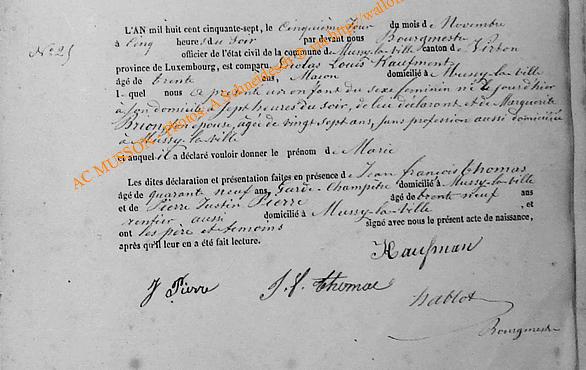 L'AN mil huit cent cinquante-sept, le Cinquième jour du mois de Novembre
N° 25
à Cinq heures du Soir par devant nous Bourgmestre
officier de l'état civil de la commune de Mussy-la-ville canton de Virton
province de Luxembourg, est comparu Nicolas Louis Kaufmont
âgé de trente ans, Maçon domicilié à Mussy-la-ville
lequel nous a présenté un enfant du sexe féminin né le jourd'hier
à son domicile à sept heures du soir, de lui déclarant et de Marguerite
épouse, âgée de vingt sept ans, sans profession aussi domiciliée
à Mussy-la-ville
et auquel il a déclaré vouloir donner le prénom de Marie
Les dites déclaration et présentation faites en présence de Jean françois thomas
âgé de quarante neuf ans Garde-Champêtre domicilié à Mussy-la-ville
et de Pierre Justin Pierre âgé de trente neuf ans
rentier aussi domicilié à Mussy-la-ville, et
ont les père et témoins signé avec nous le présent acte de naissance,
après qu'il leur en a été fait lecture.
Kaufman
J Pierre
J. f. thomas
Bourgmestre
AC MUSSON - Photos: A schneiders